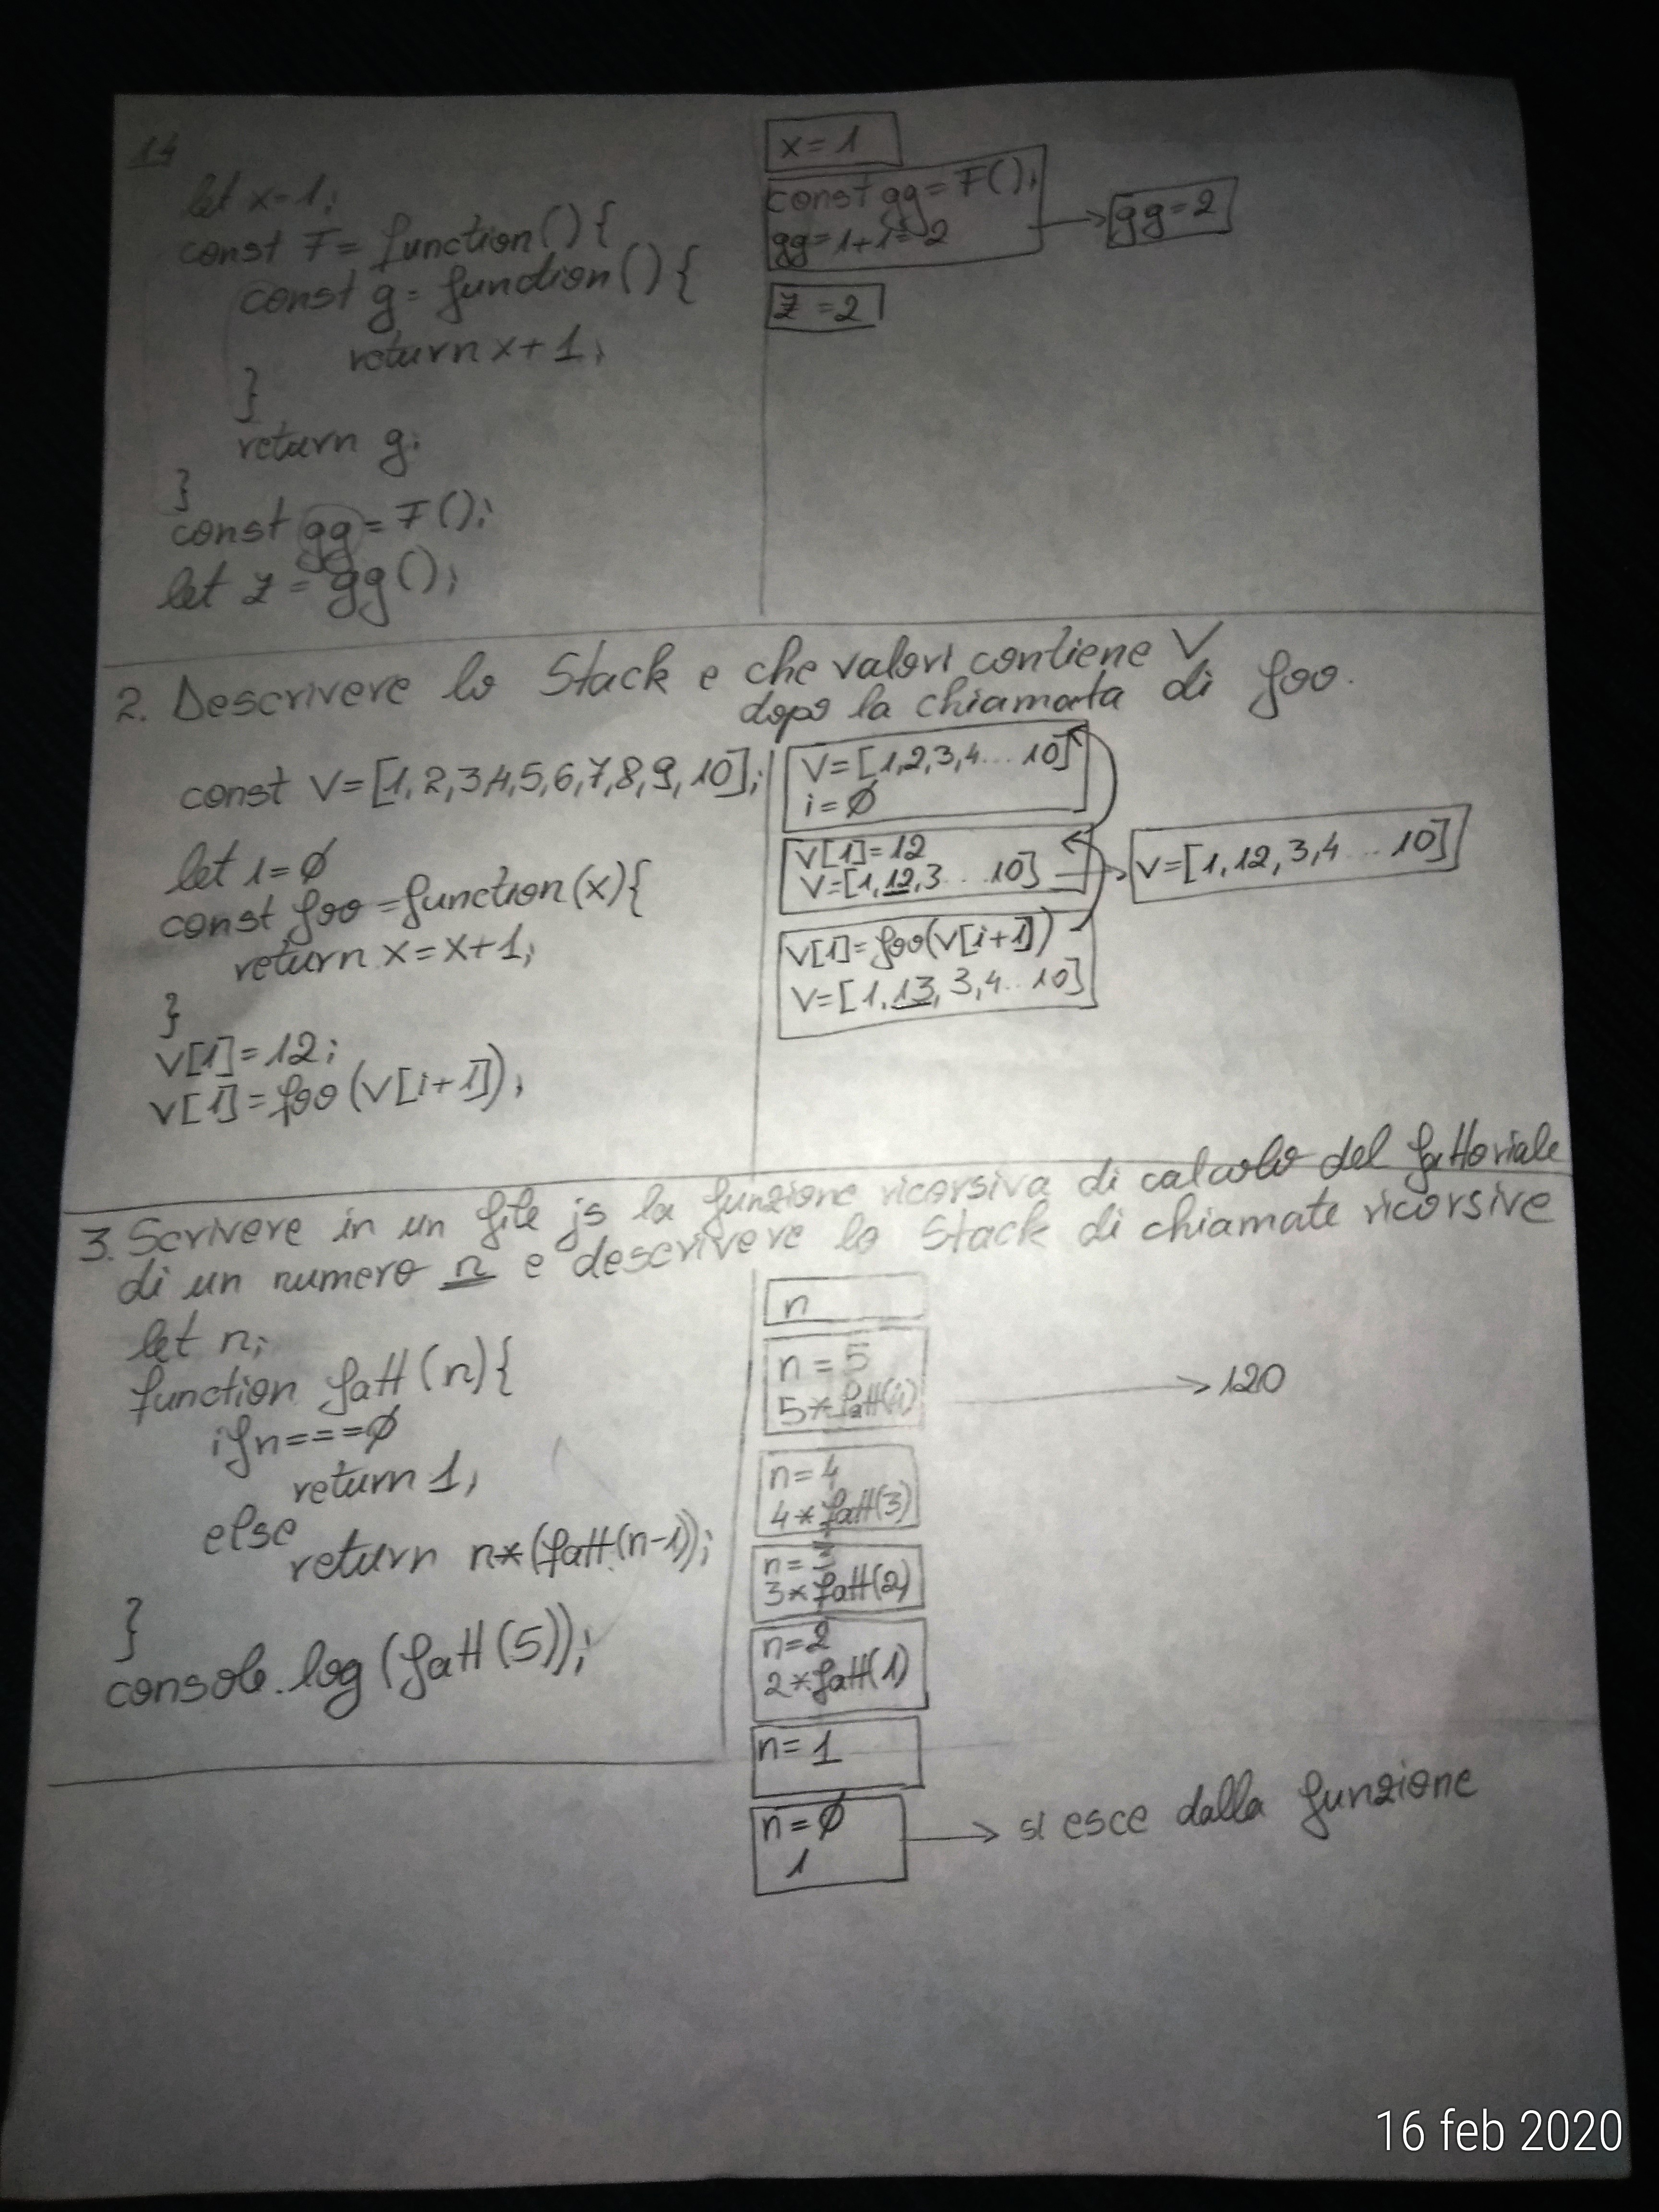 14
let x=1;
const F= function(){
const g= function(){
return x+1;
}
return g;
}
const gg=F();
let z=gg();
x=1
const gg=F();
gg=1+1=2
gg=2
z=2
2. Descrivere lo Stack e che valori contiene V
dopo la chiamata di foo.
const V=[1,2,3,4,5,6,7,8,9,10];
let i=0
const foo=function(x){
return x=x+1;
}
v[1]=12;
v[1]=foo(v[i+1]);
V=[1,2,3,4...10]
i=0
v[1]=12
V=[1,12,3...10]
V=[1,12,3,4...10]
v[1]=foo(v[i+1])
V=[1,13,3,4..10]
3. Scrivere in un file js la funzione ricorsiva di calcolo del fattoriale
di un numero n e descrivere lo Stack di chiamate ricorsive
let n;
function fatt(n){
if n===0
return 1;
else
return n*(fatt(n-1));
}
console.log(fatt(5));
n
n=5
5*fatt(4)
120
n=4
4*fatt(3)
n=3
3*fatt(2)
n=2
2*fatt(1)
n=1
n=0
1
si esce dalla funzione
16 feb 2020